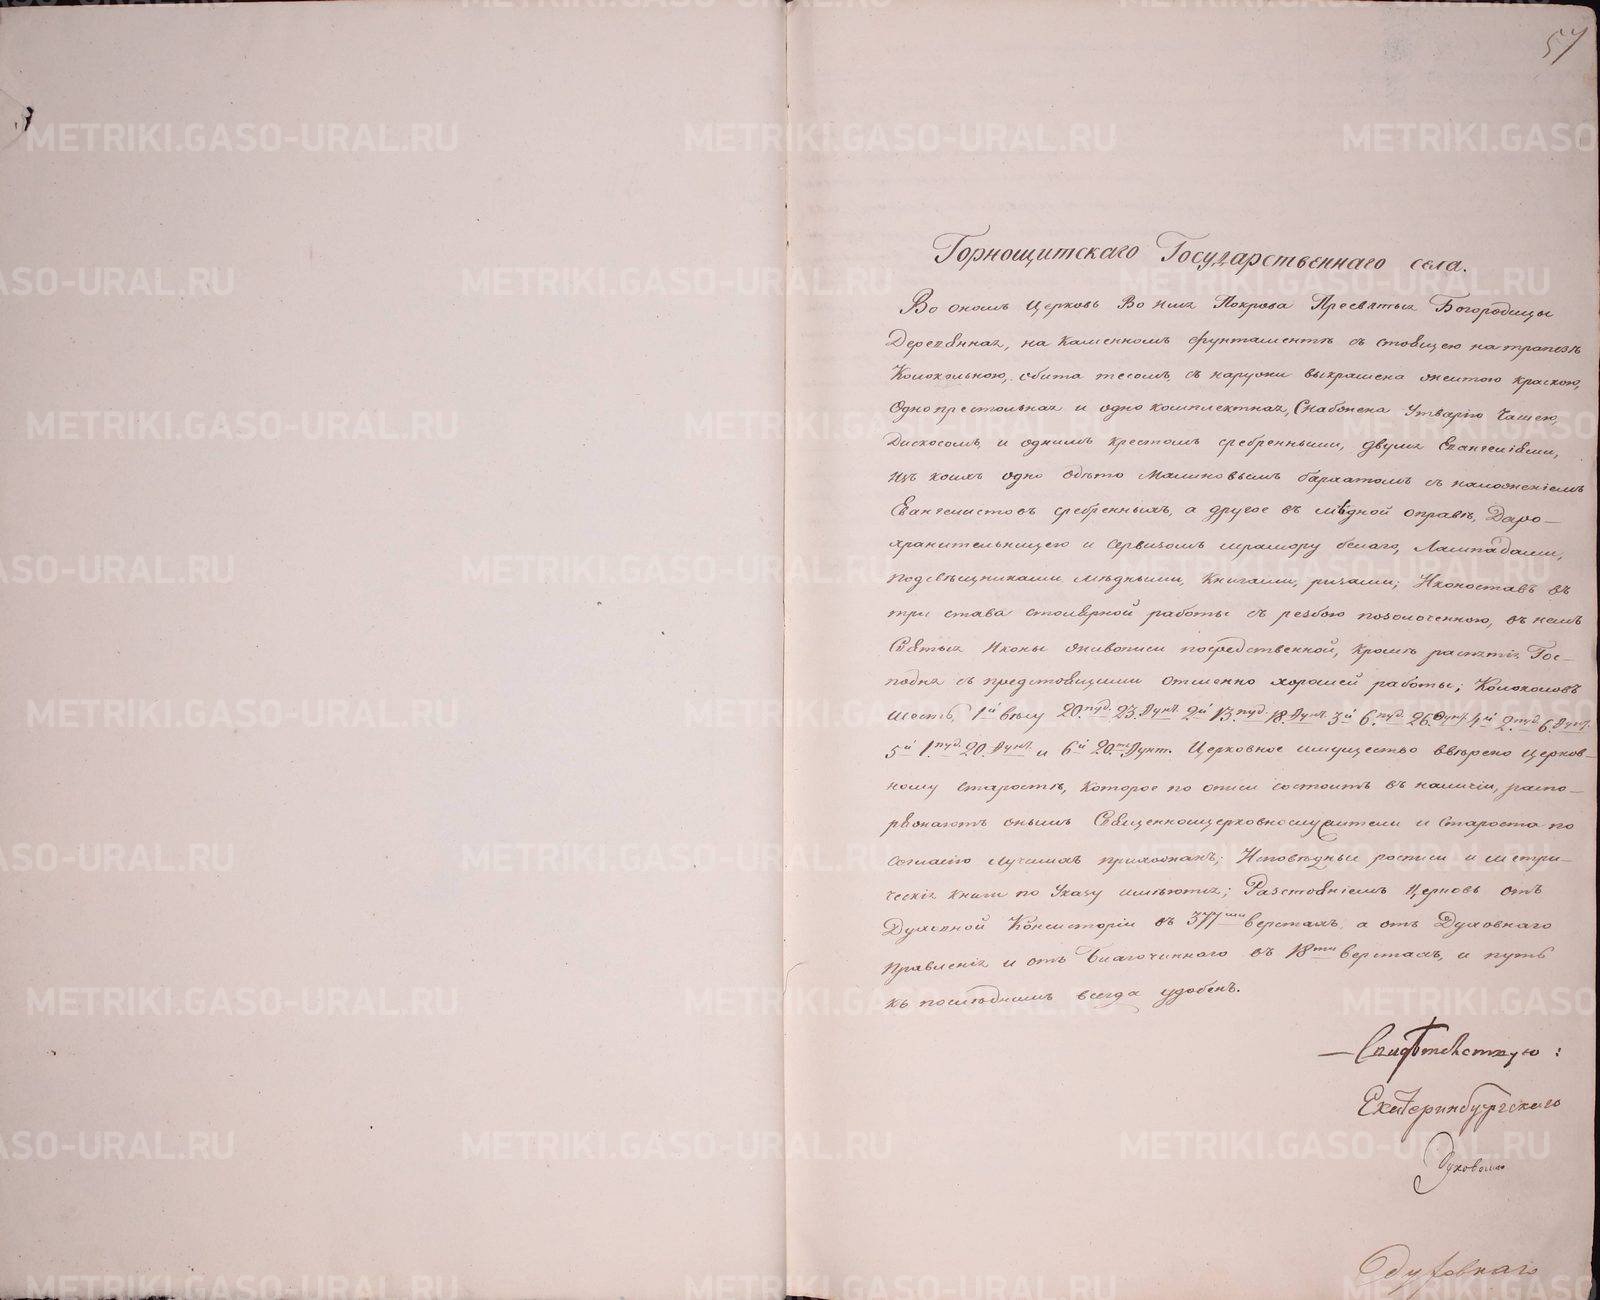 57
Горнощитскаго Государственнаго села.
Во ономъ Церковь Во имя Покрова Пресвятыя Богородицы
Деревянная, на каменномъ фунтаментѣ съ стоящею на трапезѣ
Колокольнею, обита тесомъ, съ наружи выкрашена желтою краскою,
Однопрестольная и однокомплектная, Снабжена Утварію Чашею,
Дискосомъ, и однимъ крестомъ сребренными, двумя Евангеліями,
изъ коихъ одно обѣто Малиновымъ бархатомъ съ наложеніемъ
Евангелистовъ сребренныхъ, а другое въ мѣдной оправѣ, Даро-
хранительницею и Сервизомъ мрамору белаго, Лампадами,
подсвѣщниками мѣдными, Книгами, ризами; Иконостасъ въ
три става столярной работы съ резбою позолоченною, въ немъ
Святыя Иконы живописи посредственной, кромѣ распятія Гос-
подня съ предстоящими отменно хорошей работы; Колоколовъ
шесть, 1й вѣсу 20. пуд. 23. Фунт. 2й 13. пуд. 18. Фунт. 3й 6. пуд. 26. Фунт. 4й 2. пуд. 6. Фунт.
5й 1. пуд. 20. Фунт. и 6й 20. ть Фунт. Церковное имущество ввѣрено церков-
ному старостѣ, которое по описи состоитъ въ наличіи, распо-
ряжаютъ онымъ Священноцерковнослужители и Староста по
согласію лучшихъ прихожанъ; Исповѣдныя росписи и метри-
ческія книги по Указу имѣются; Разстояніемъ Церковь отъ
Духовной Консисторіи въ 377ми верстахъ, а отъ Духовнаго
Правленія и отъ Благочиннаго въ 18ти верстахъ, и путь
къ послѣднимъ всегда удобенъ.
— Свидѣтельствую:
Екатеринбургскаго
Духовнаго
METRIKI.GASO-URAL.RU